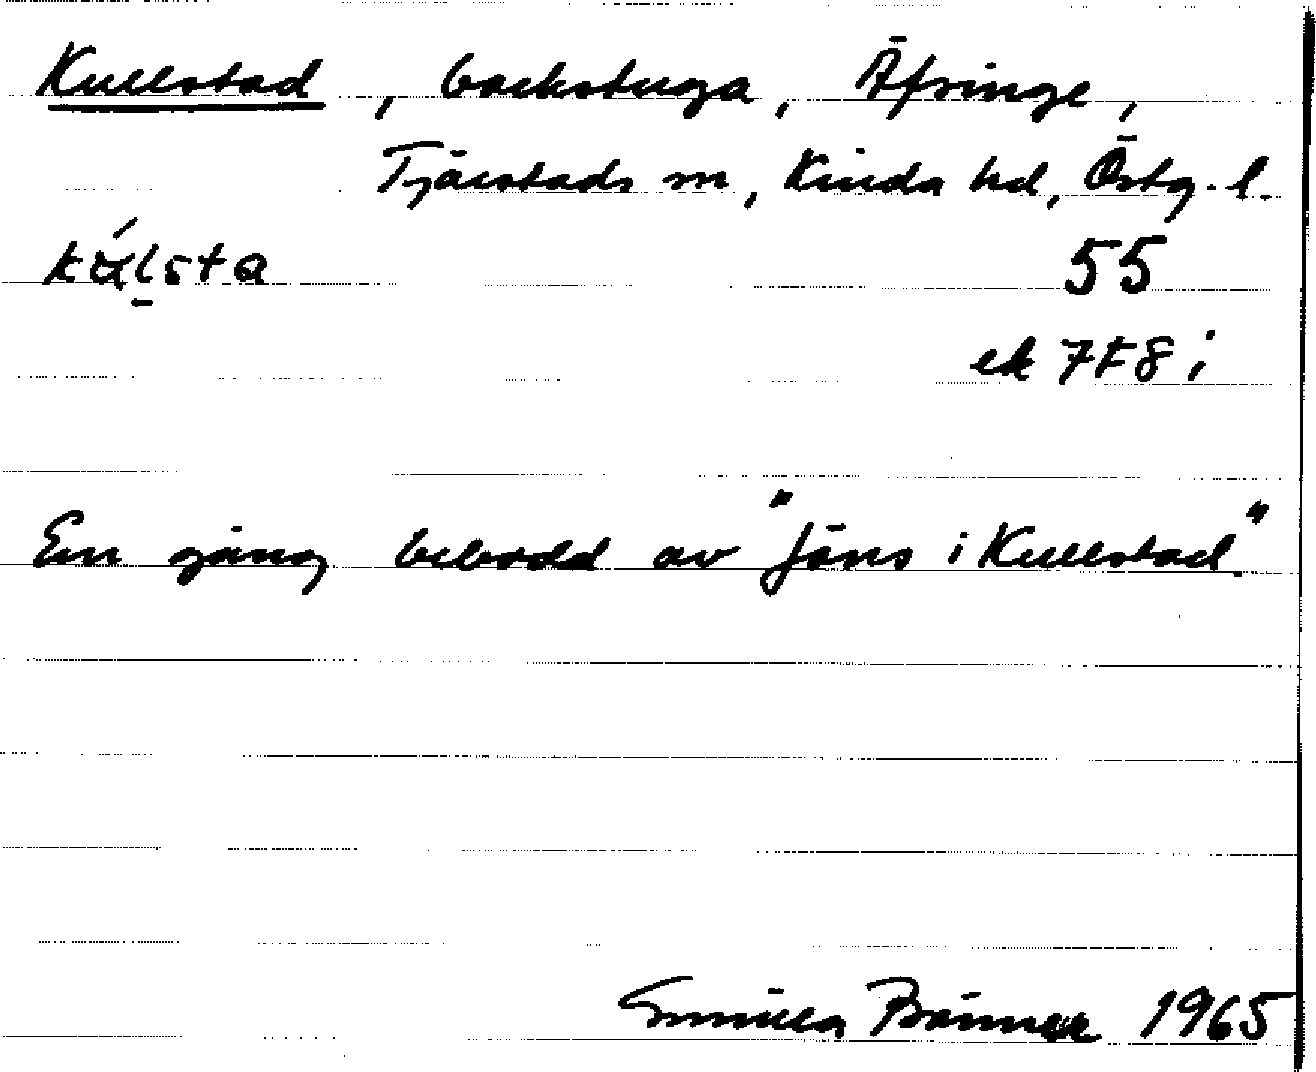 Kullstad, backstuga, Äfringe,
Tjärstads sn, Kinda hd, Östg. l.
55
ek 7F8i
En gång bebodd av "Jöns i Kullstad".
Gunilla 1965